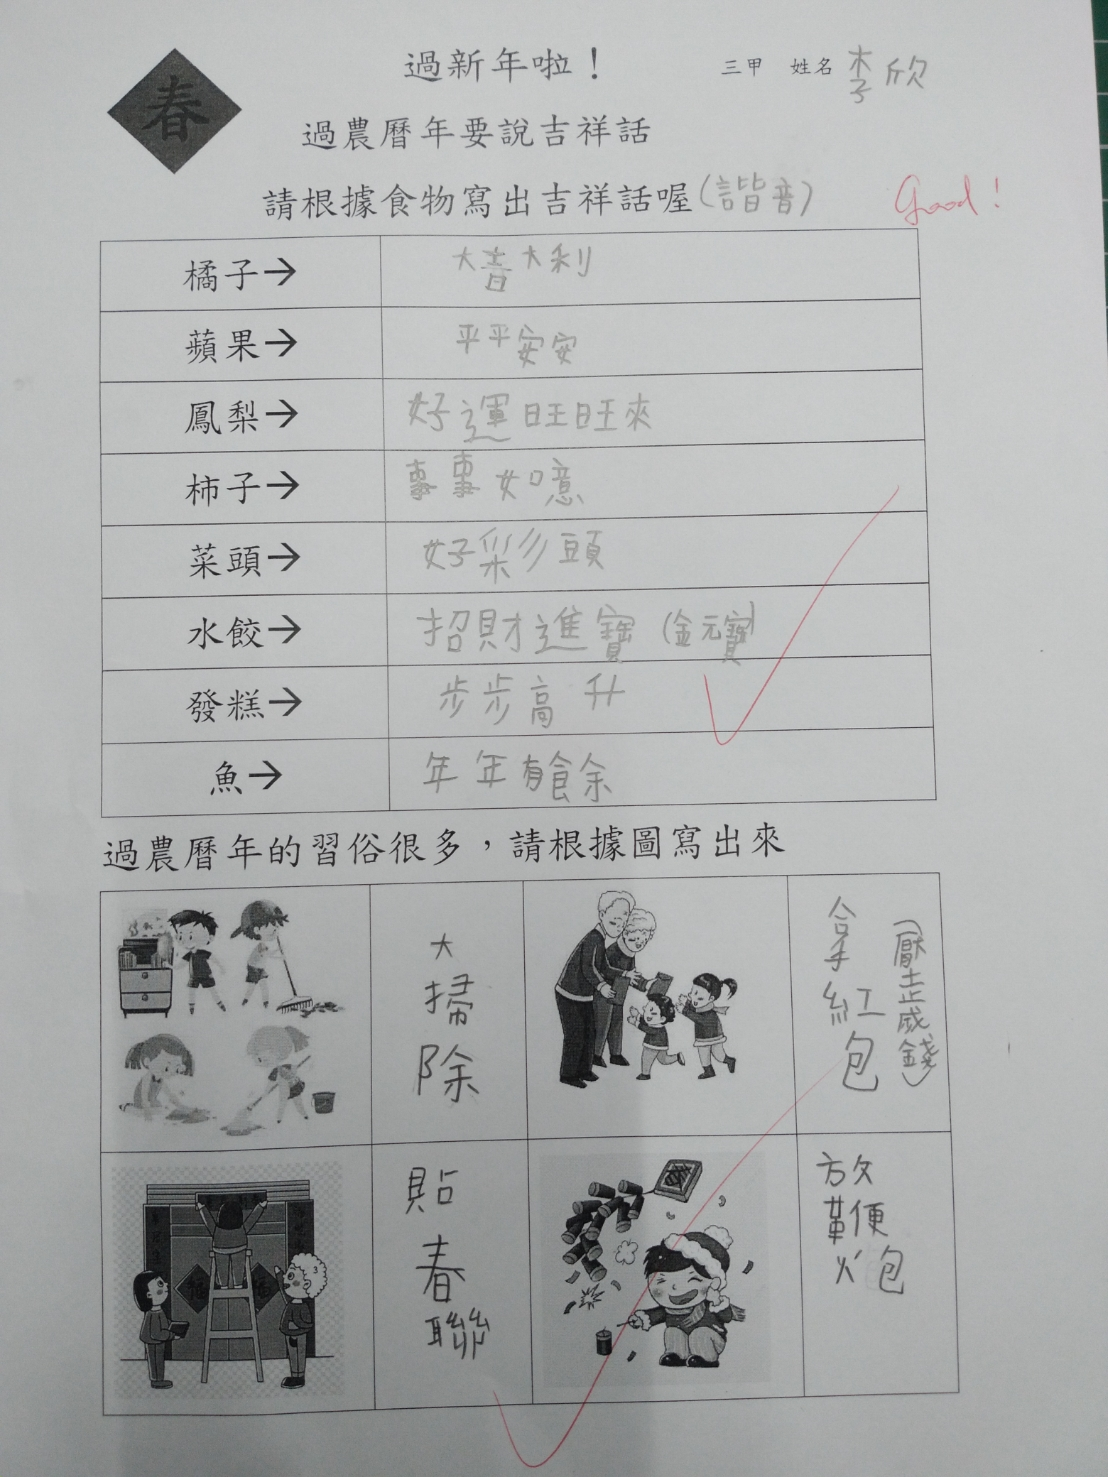 春
過新年啦！
三甲 姓名 李欣
過農曆年要說吉祥話
請根據食物寫出吉祥話喔(諧音)
Good!
橘子→ 大吉大利
蘋果→ 平平安安
鳳梨→ 好運旺旺來
柿子→ 事事如意
菜頭→ 好彩頭
水餃→ 招財進寶 (金元寶)
發糕→ 步步高升
魚→ 年年有餘
過農曆年的習俗很多，請根據圖寫出來
大掃除
拿紅包
(壓歲錢)
貼春聯
放鞭炮